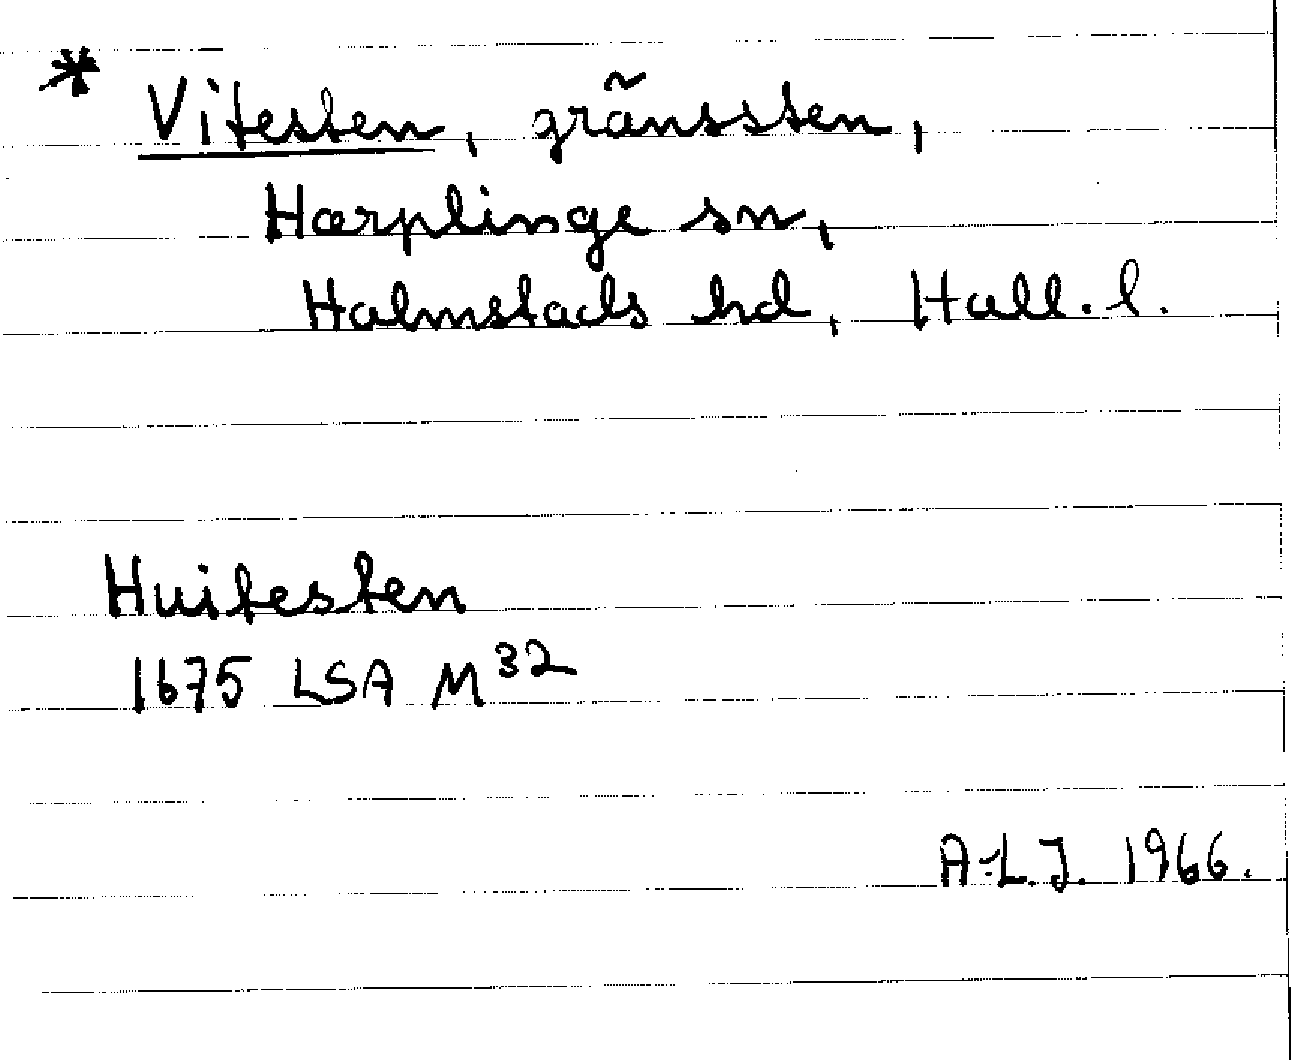 * Vitesten, gränssten,
Harplinge sn,
Halmstads hd, Hall. l.
Huitesten
1675 LSA M³²
A-L.J. 1966.